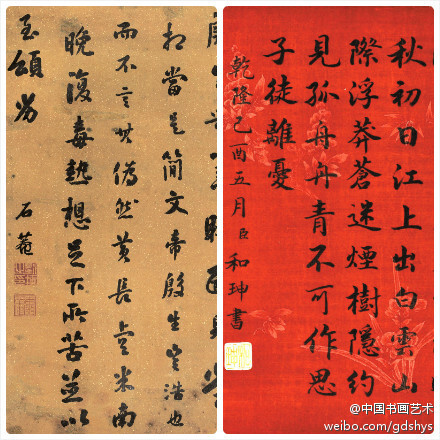 當是簡文帝殷生定浩也
而不言其偽然黃長睿米南
晚復毒熱想足下所苦並以
至頌勞
石菴
秋初日江上出白雲山
際浮莽蒼迷煙樹隱約
見孤舟丹青不可作思
子徒離憂
乾隆己酉五月臣和珅書
@中国书画艺术
weibo.com/gdshys